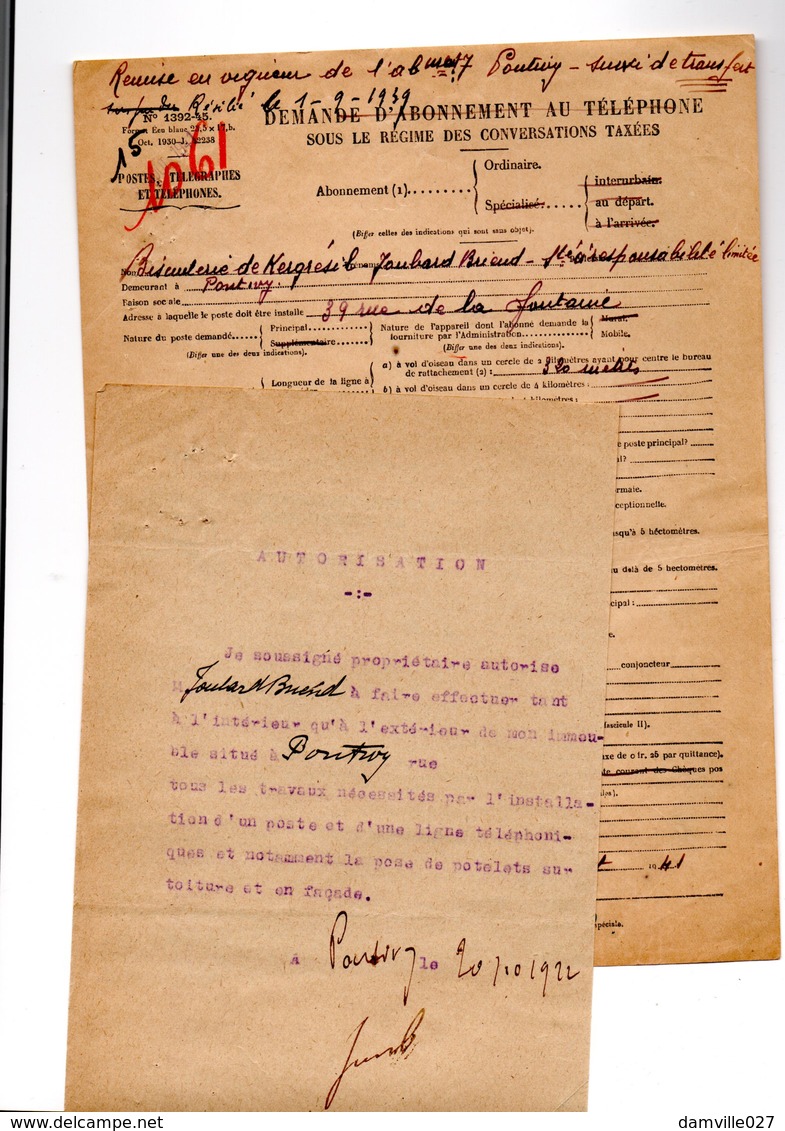 Remise en vigueur de l'ab 7 Pontivy - suivi de transfert
Résilié le 1-9-1939
N° 1392-45.
Oct. 1930-J.
15
1061
POSTES, TÉLÉGRAPHES
ET TÉLÉPHONES.
DEMANDE D'ABONNEMENT AU TÉLÉPHONE
SOUS LE RÉGIME DES CONVERSATIONS TAXÉES
Abonnement (1)
Ordinaire.
Spécialisé.
interurbain.
au départ.
à l'arrivée.
(Biffer celles des indications qui sont sans objet).
Biscuiterie de Kergrésil Joubard Briend - Sté à responsabilité limitée
Demeurant à Pontivy.
Raison sociale
Adresse à laquelle le poste doit être installé 39 rue de la Fontaine
Nature du poste demandé.
Principal
Supplémentaire
(Biffer une des deux indications).
Nature de l'appareil dont l'abonné demande la
fourniture par l'Administration
Mural.
Mobile.
(Biffer une des deux indications).
Longueur de la ligne à
a) à vol d'oiseau dans un cercle de 2 kilomètres ayant pour centre le bureau
de rattachement (2) : 320 mètres
b) à vol d'oiseau dans un cercle de 4 kilomètres :
kilomètres :
e poste principal?
al?
ormale.
ceptionnelle.
usqu'à 5 hectomètres.
au delà de 5 hectomètres.
cipal :
conjoncteur
fascicule II).
axe de 0 fr. 25 par quittance).
te courant des Chèques pos
1941
spéciale.
AUTORISATION
-:-
Je soussigné propriétaire autorise
M Joubard Briend à faire effectuer tant
à l'intérieur qu'à l'extérieur de mon immeu-
ble situé à Pontivy rue
tous les travaux nécessités par l'installa-
tion d'un poste et d'une ligne téléphoni-
ques et notamment la pose de potelets sur
toiture et en façade.
A Pontivy le 20/10 1922
damville027